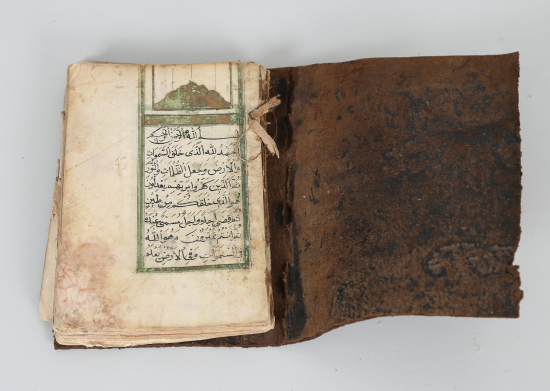 بسم الله الرحمن الرحيم
الحمد لله الذى خلق السموات
والارض وجعل الظلمات والنور
ثم الذين كفروا بربهم يعدلون
هو الذى خلقكم من طين
ثم قضى اجلا واجل مسمى عنده
ثم انتم تمترون وهو الله
فى السموات وفى الارض يعلم